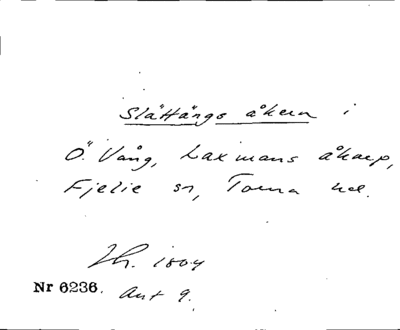 Slättängs åkern i
Ö. Vång, Laxmans åkarp,
Fjelie sn, Torna hd.
Lh. 1804
Nr 6236. Akt 9.